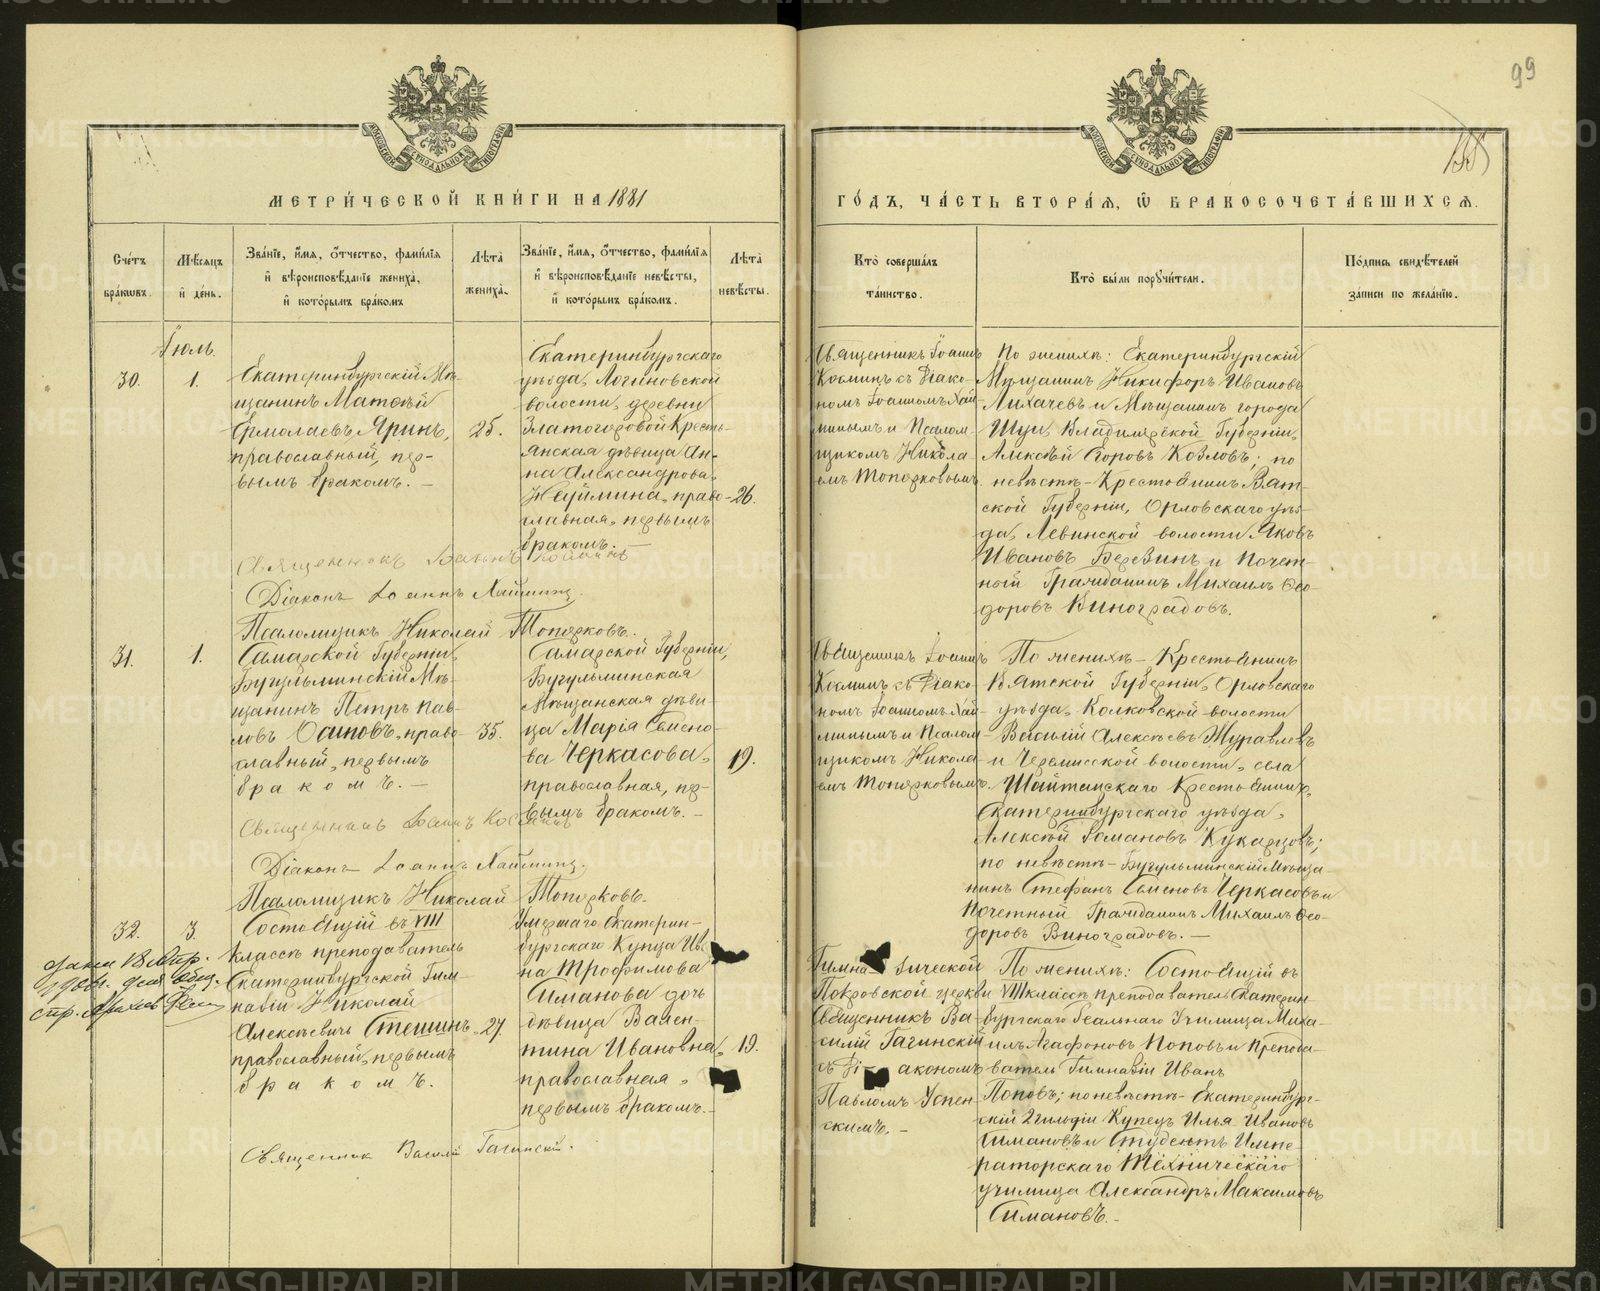 99
МЕТРИ́ЧЕСКОЙ КНИ́ГИ НА 1881
ГО́ДЪ, ЧА́СТЬ ВТОРА́Ѧ, Ѽ БРАКОСОЧЕТА́ВШИХСѦ.
Сче́тъ бра́кѡвъ.
Мѣ́сѧцъ и҆ де́нь.
Зва́нїе, и҆́мѧ, ѻ҆́тчество, фами́лїѧ
и҆ вѣроисповѣ́данїе жениха̀,
и҆ кото́рымъ бра́комъ
Лѣ́та жениха̀.
Зва́нїе, и҆́мѧ, ѻ҆́тчество, фами́лїѧ
и҆ вѣроисповѣ́данїе невѣ́сты,
и҆ кото́рымъ бра́комъ.
Лѣ́та невѣ́сты.
Кто̀ соверша́лъ
та́инство.
Кто̀ бы́ли порꙋчи́тели.
По́дпись свидѣ́телей
за́писи по жела́нїю.
Іюль.
30.
1.
Екатеринбургскій Мѣ-
щанинъ Матѳей
Ермолаевъ Яринъ,
православный, пер-
вымъ бракомъ. —
25.
Екатеринбургскаго
уѣзда, Логиновской
волости, деревни
Златогоровой Кресть-
янская дѣвица Ан-
на Александрова
Неуймина, право-
славная, первымъ
бракомъ. —
26.
Священникъ Іоаннъ
Косминъ съ Діако-
номъ Іоанномъ Хай-
минымъ и Псалом-
щикомъ Никола-
емъ Топорковымъ.
По женихѣ: Екатеринбургскій
Мѣщанинъ Никифоръ Ивановъ
Лихачевъ и Мѣщанинъ города
Шуи, Владимірской Губерніи,
Алексѣй Егоровъ Козловъ; по
невѣстѣ – Крестьянинъ Вят-
ской Губерніи, Орловскаго уѣз-
да, Левинской волости Яковъ
Ивановъ Березинъ и Почет-
ный Гражданинъ Михаилъ Ѳео-
доровъ Виноградовъ.
Священникъ Іоаннъ Косминъ
Діаконъ Іоаннъ Хайминъ.
Псаломщикъ Николай Топорковъ.
31.
1.
Самарской Губерніи,
Бугульминскій Мѣ-
щанинъ Петръ Пав-
ловъ Осиповъ, право-
славный, первымъ
бракомъ. —
35.
Самарской Губерніи,
Бугульминская
Мѣщанская дѣви-
ца Марія Семено-
ва Черкасова,
православная, пер-
вымъ бракомъ. —
19.
Священникъ Іоаннъ
Косминъ съ Діако-
номъ Іоанномъ Хай-
минымъ и Псалом-
щикомъ Никола-
емъ Топорковымъ.
По женихѣ – Крестьянинъ
Вятской Губерніи, Орловскаго
уѣзда, Колковской волости
Василій Алексѣевъ Журавлевъ
и Черемисской волости, села
Шайтанскаго Крестьянинъ,
Екатеринбургскаго уѣзда,
Алексѣй Романовъ Кукарцовъ;
по невѣстѣ – Бугульминскій Мѣща-
нинъ Стефанъ Семеновъ Черкасовъ и
Почетный Гражданинъ Михаилъ Ѳео-
доровъ Виноградовъ. —
Священникъ Іоаннъ Косминъ
Діаконъ Іоаннъ Хайминъ.
Псаломщикъ Николай Топорковъ.
32.
3.
Состоящій въ VIII
классѣ преподаватель
Екатеринбургской Гим-
назіи Николай
Алексѣевичъ Стешинъ,
православный, первымъ
бракомъ.
27.
Умершаго Екатерин-
бургскаго Купца Ива-
на Трофимова
Симанова дочь
дѣвица Вален-
тина Ивановна,
православная,
первымъ бракомъ. —
19.
Гимназической
Покровской церкви
Священникъ Ва-
силій Гагинскій
съ Діакономъ
Павломъ Успен-
скимъ. —
По женихѣ: Состоящій въ
VIII классѣ преподаватель Екатерин-
бургскаго Реальнаго Училища Миха-
илъ Агафоновъ Поповъ и Препода-
ватель Гимназіи Иванъ
Поповъ; по невѣстѣ – Екатеринбург-
скій 2 гильдіи Купецъ Илья Ивановъ
Симановъ и Студентъ Импе-
раторскаго Техническаго
училища Александръ Максимовъ
Симановъ. –
Священник Василій Гагинскій.
METRIKI.GASO-URAL.RU